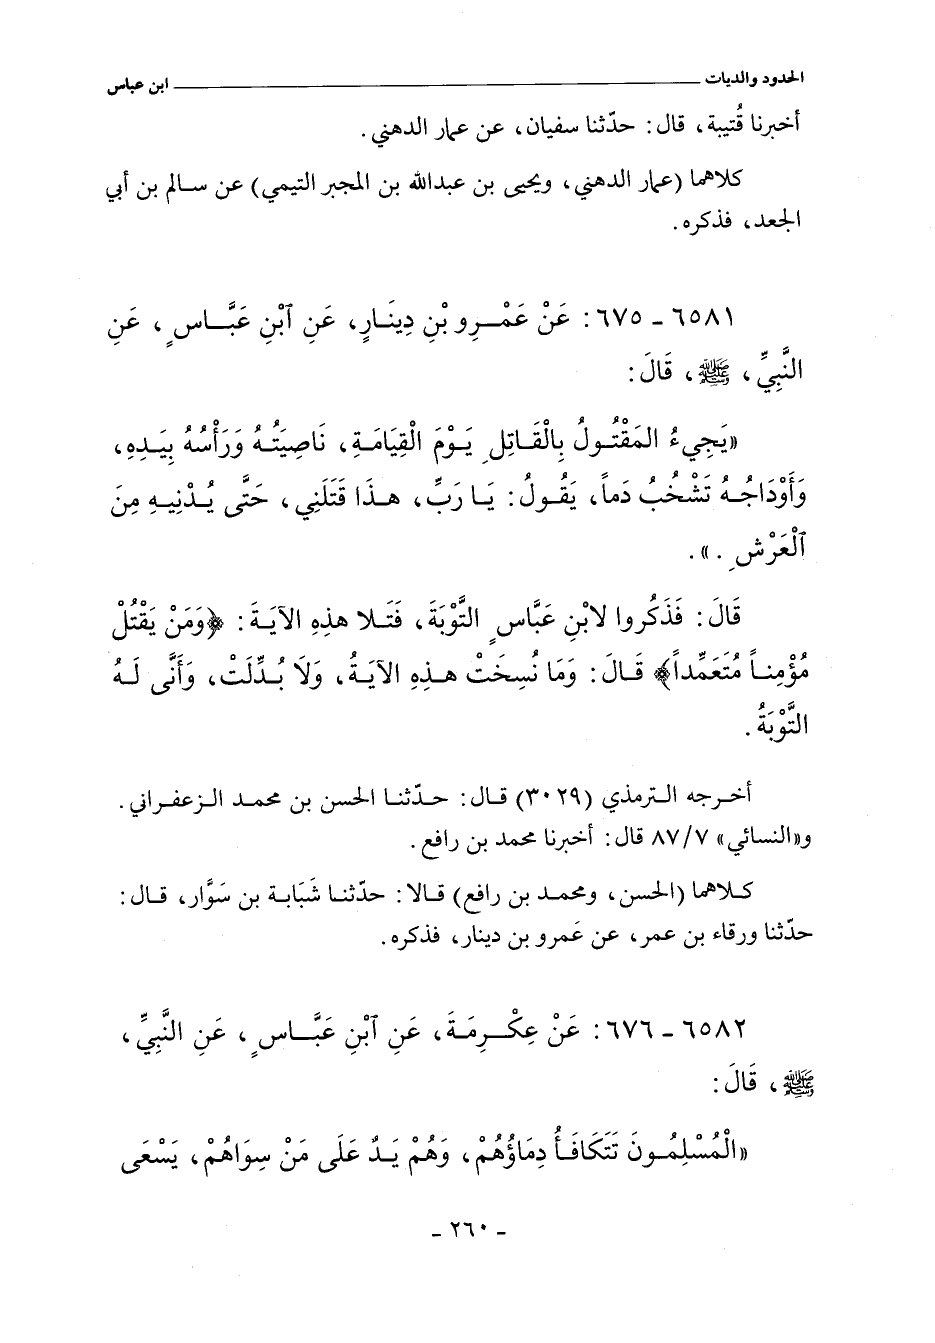 الحدود والديات ابن عباس
أخبرنا قُتيبة، قال: حدّثنا سفيان، عن عمار الدهني.
كلاهما (عمار الدهني، ويحيى بن عبدالله بن المجبر التيمي) عن سالم بن أبي
الجعد، فذكره.
٦٥٨١ - ٦٧٥: عَنْ عَمْرِو بْنِ دِينَارٍ، عَنِ ٱبْنِ عَبَّاسٍ، عَنِ
النَّبِيِّ، ﷺ، قَالَ:
«يَجِيءُ المَقْتُولُ بِالْقَاتِلِ يَوْمَ الْقِيَامَةِ، نَاصِيَتُهُ وَرَأْسُهُ بِيَدِهِ،
وَأَوْدَاجُهُ تَشْخُبُ دَماً، يَقُولُ: يَا رَبِّ، هذَا قَتَلَنِي، حَتَّى يُدْنِيهِ مِنَ
ٱلْعَرْشِ .».
قَالَ: فَذَكُروا لابْنِ عَبَّاسٍ التَّوْبَةَ، فَتَلا هذِهِ الآيَةَ: ﴿وَمَنْ يَقْتُلْ
مُؤْمِناً مُتَعَمِّداً﴾ قَالَ: وَمَا نُسِخَتْ هذِهِ الآيَةُ، وَلَا بُدِّلَتْ، وَأَنَّى لَهُ
التَّوْبَةُ.
أخرجه الترمذي (٣٠٢٩) قال: حدّثنا الحسن بن محمد الزعفراني.
و«النسائي» ٨٧/٧ قال: أخبرنا محمد بن رافع.
كلاهما (الحسن، ومحمد بن رافع) قالا: حدّثنا شَبَابة بن سَوَّار، قال:
حدّثنا ورقاء بن عمر، عن عَمرو بن دينار، فذكره.
٦٥٨٢ - ٦٧٦: عَنْ عِكْرِمَةَ، عَنِ ٱبْنِ عَبَّاسٍ، عَنِ النَّبِيِّ،
ﷺ، قَالَ:
«الْمُسْلِمُونَ تَتَكَافَأُ دِمَاؤُهُمْ، وَهُمْ يَدٌ عَلَى مَنْ سِوَاهُمْ، يَسْعَى
- ٢٦٠ -